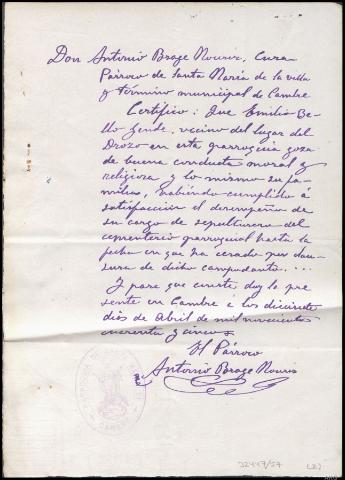 Don Antonio Brage Nouris, Cura
Párroco de Santa María de la villa
y término municipal de Cambre
Certifico: Que Emilio Be-
llo Zende, vecino del lugar del
Drozo en esta parroquia goza
de buena conducta moral y
religiosa y lo mismo su fa-
milia, habiendo cumplido á
satisfacción el desempeño de
su cargo de sepulturero del
cementerio parroquial hasta la
fecha en que ha cesado por clau-
sura de dicho camposanto. . . .
Y para que conste doy la pre
sente en Cambre á los diecisiete
días de Abril de mil novecientos
cuarenta y cinco.
El Párroco
Antonio Brage Nouris
CAMBRE
32447/57 (2)